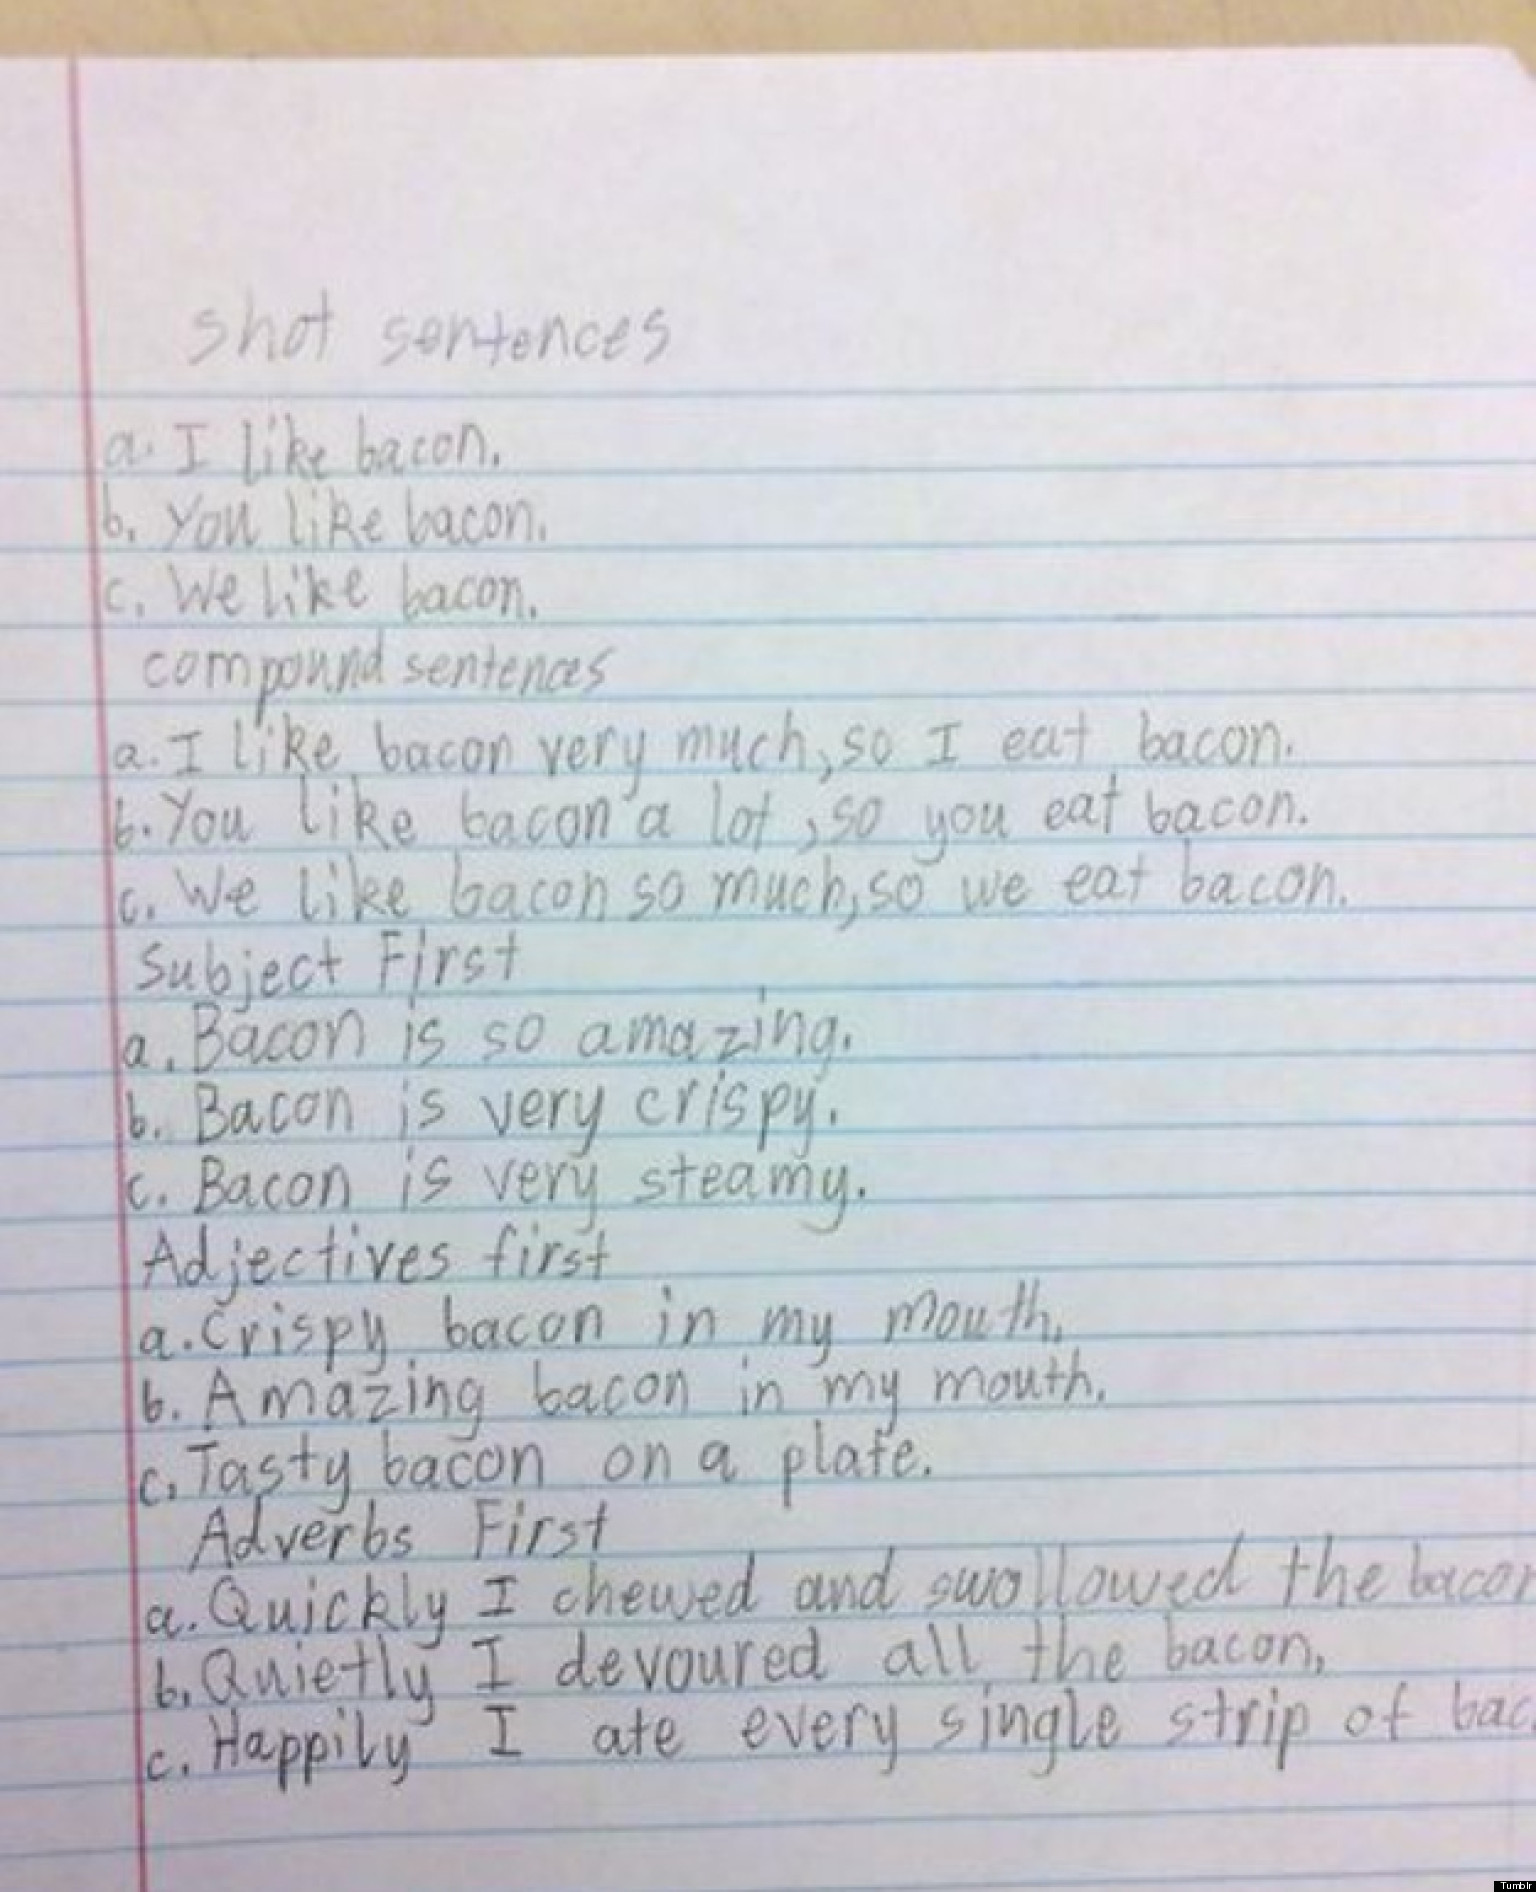 shot sentences
a. I like bacon.
b. You like bacon.
c. We like bacon.
compound sentences
a. I like bacon very much, so I eat bacon.
b. You like bacon a lot, so you eat bacon.
c. We like bacon so much, so we eat bacon.
Subject First
a. Bacon is so amazing.
b. Bacon is very crispy.
c. Bacon is very steamy.
Adjectives first
a. Crispy bacon in my mouth.
b. Amazing bacon in my mouth.
c. Tasty bacon on a plate.
Adverbs First
a. Quickly I chewed and swollowed the bacon
b. Quietly I devoured all the bacon,
c. Happily I ate every single strip of bac
Tumblr